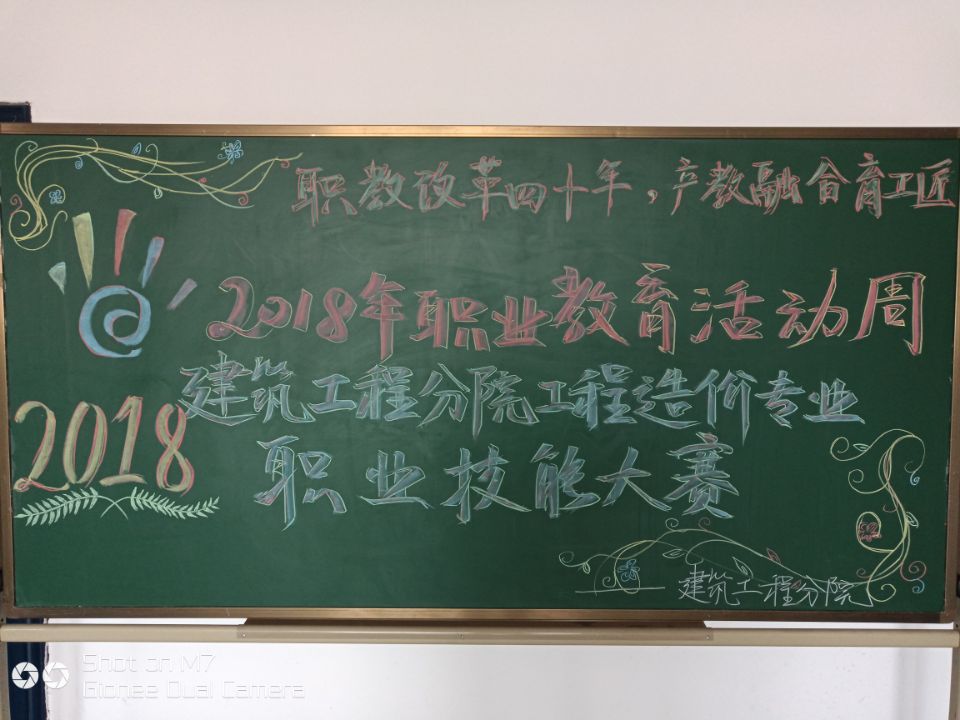 职教改革四十年，产教融合育工匠
2018年职业教育活动周
2018
建筑工程分院工程造价专业
职业技能大赛
建筑工程分院
Shot on M7
Gionee Dual Camera